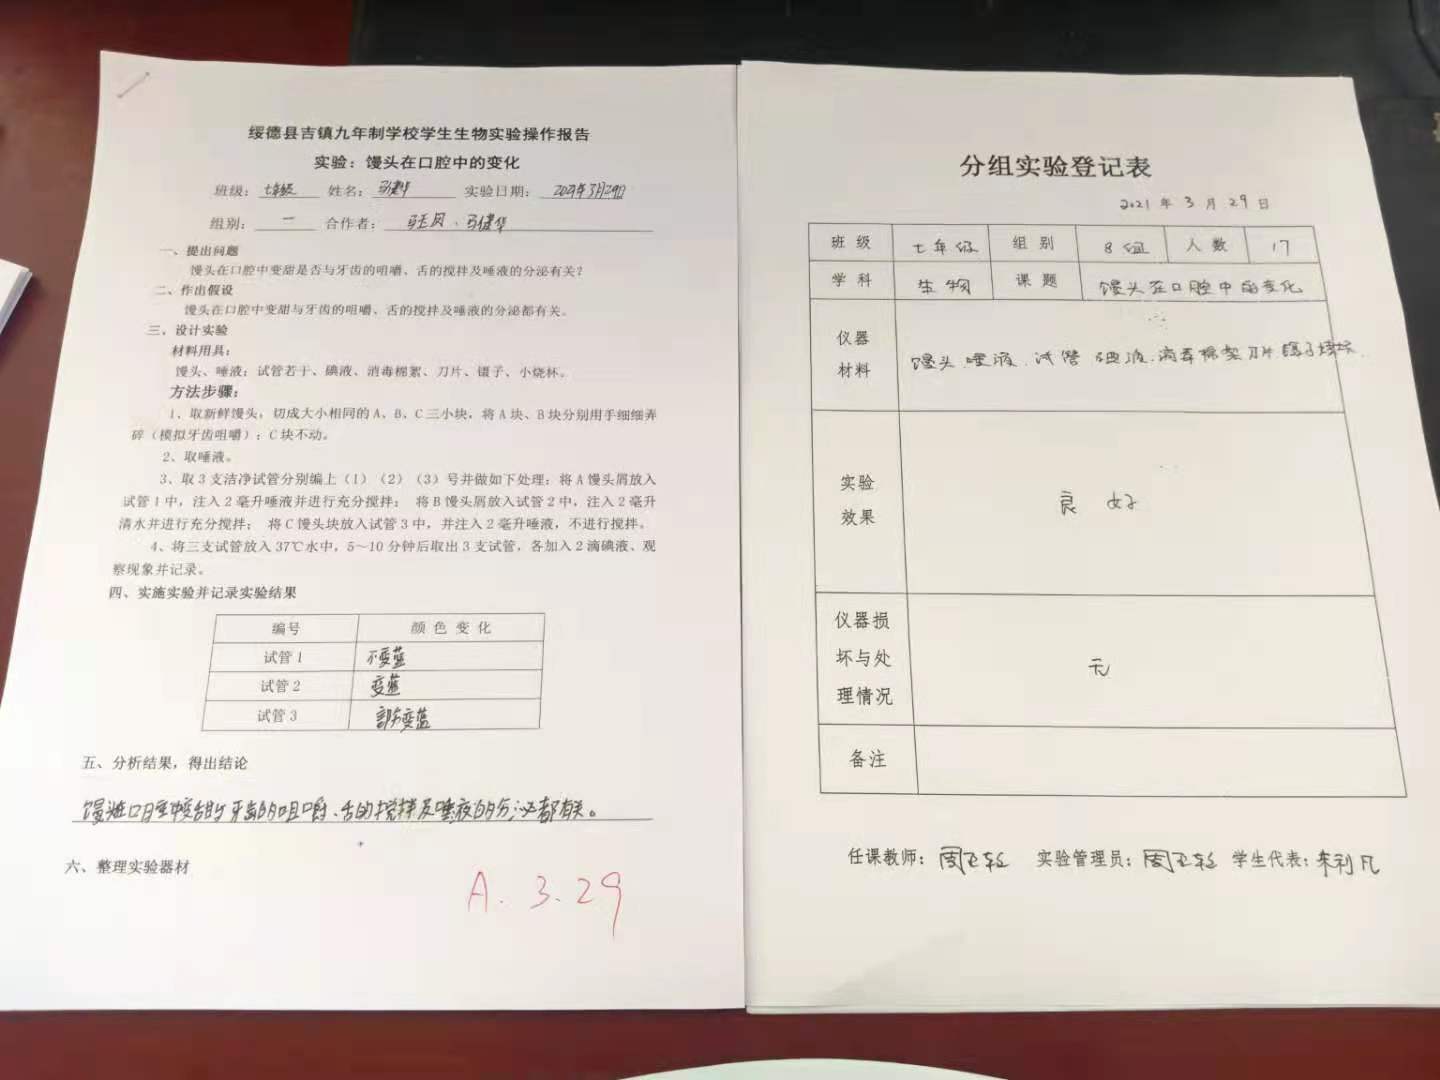 绥德县吉镇九年制学校学生生物实验操作报告
实验：馒头在口腔中的变化
班级：七年级 姓名：马健华 实验日期：2021年3月29日
组别：一 合作者：马健华
一、提出问题
馒头在口腔中变甜是否与牙齿的咀嚼、舌的搅拌及唾液的分泌有关？
二、作出假设
馒头在口腔中变甜与牙齿的咀嚼、舌的搅拌及唾液的分泌都有关。
三、设计实验
材料用具：
馒头、唾液；试管若干、碘液、消毒棉絮、刀片、镊子、小烧杯。
方法步骤：
1、取新鲜馒头，切成大小相同的A、B、C三小块，将A块、B块分别用手细细弄
碎（模拟牙齿咀嚼）；C块不动。
2、取唾液。
3、取3支洁净试管分别编上（1）（2）（3）号并做如下处理：将A馒头屑放入
试管1中，注入2毫升唾液并进行充分搅拌； 将B馒头屑放入试管2中，注入2毫升
清水并进行充分搅拌； 将C馒头块放入试管3中，并注入2毫升唾液，不进行搅拌。
4、将三支试管放入37℃水中，5～10分钟后取出3支试管，各加入2滴碘液、观
察现象并记录。
四、实施实验并记录实验结果
编号 颜色变化
试管1 不变蓝
试管2 变蓝
试管3 部分变蓝
五、分析结果，得出结论
馒头在口腔中变甜与牙齿的咀嚼、舌的搅拌及唾液的分泌都有关。
六、整理实验器材
A. 3.29
分组实验登记表
2021年3月29日
班级 七年级 组别 8组 人数 17
学科 生物 课题 馒头在口腔中的变化
仪器
材料
馒头 唾液、试管 碘液、消毒棉絮 刀片 镊子 烧杯
实验
效果
良好
仪器损
坏与处
理情况
无
备注
任课教师： 实验管理员： 学生代表：朱利凡